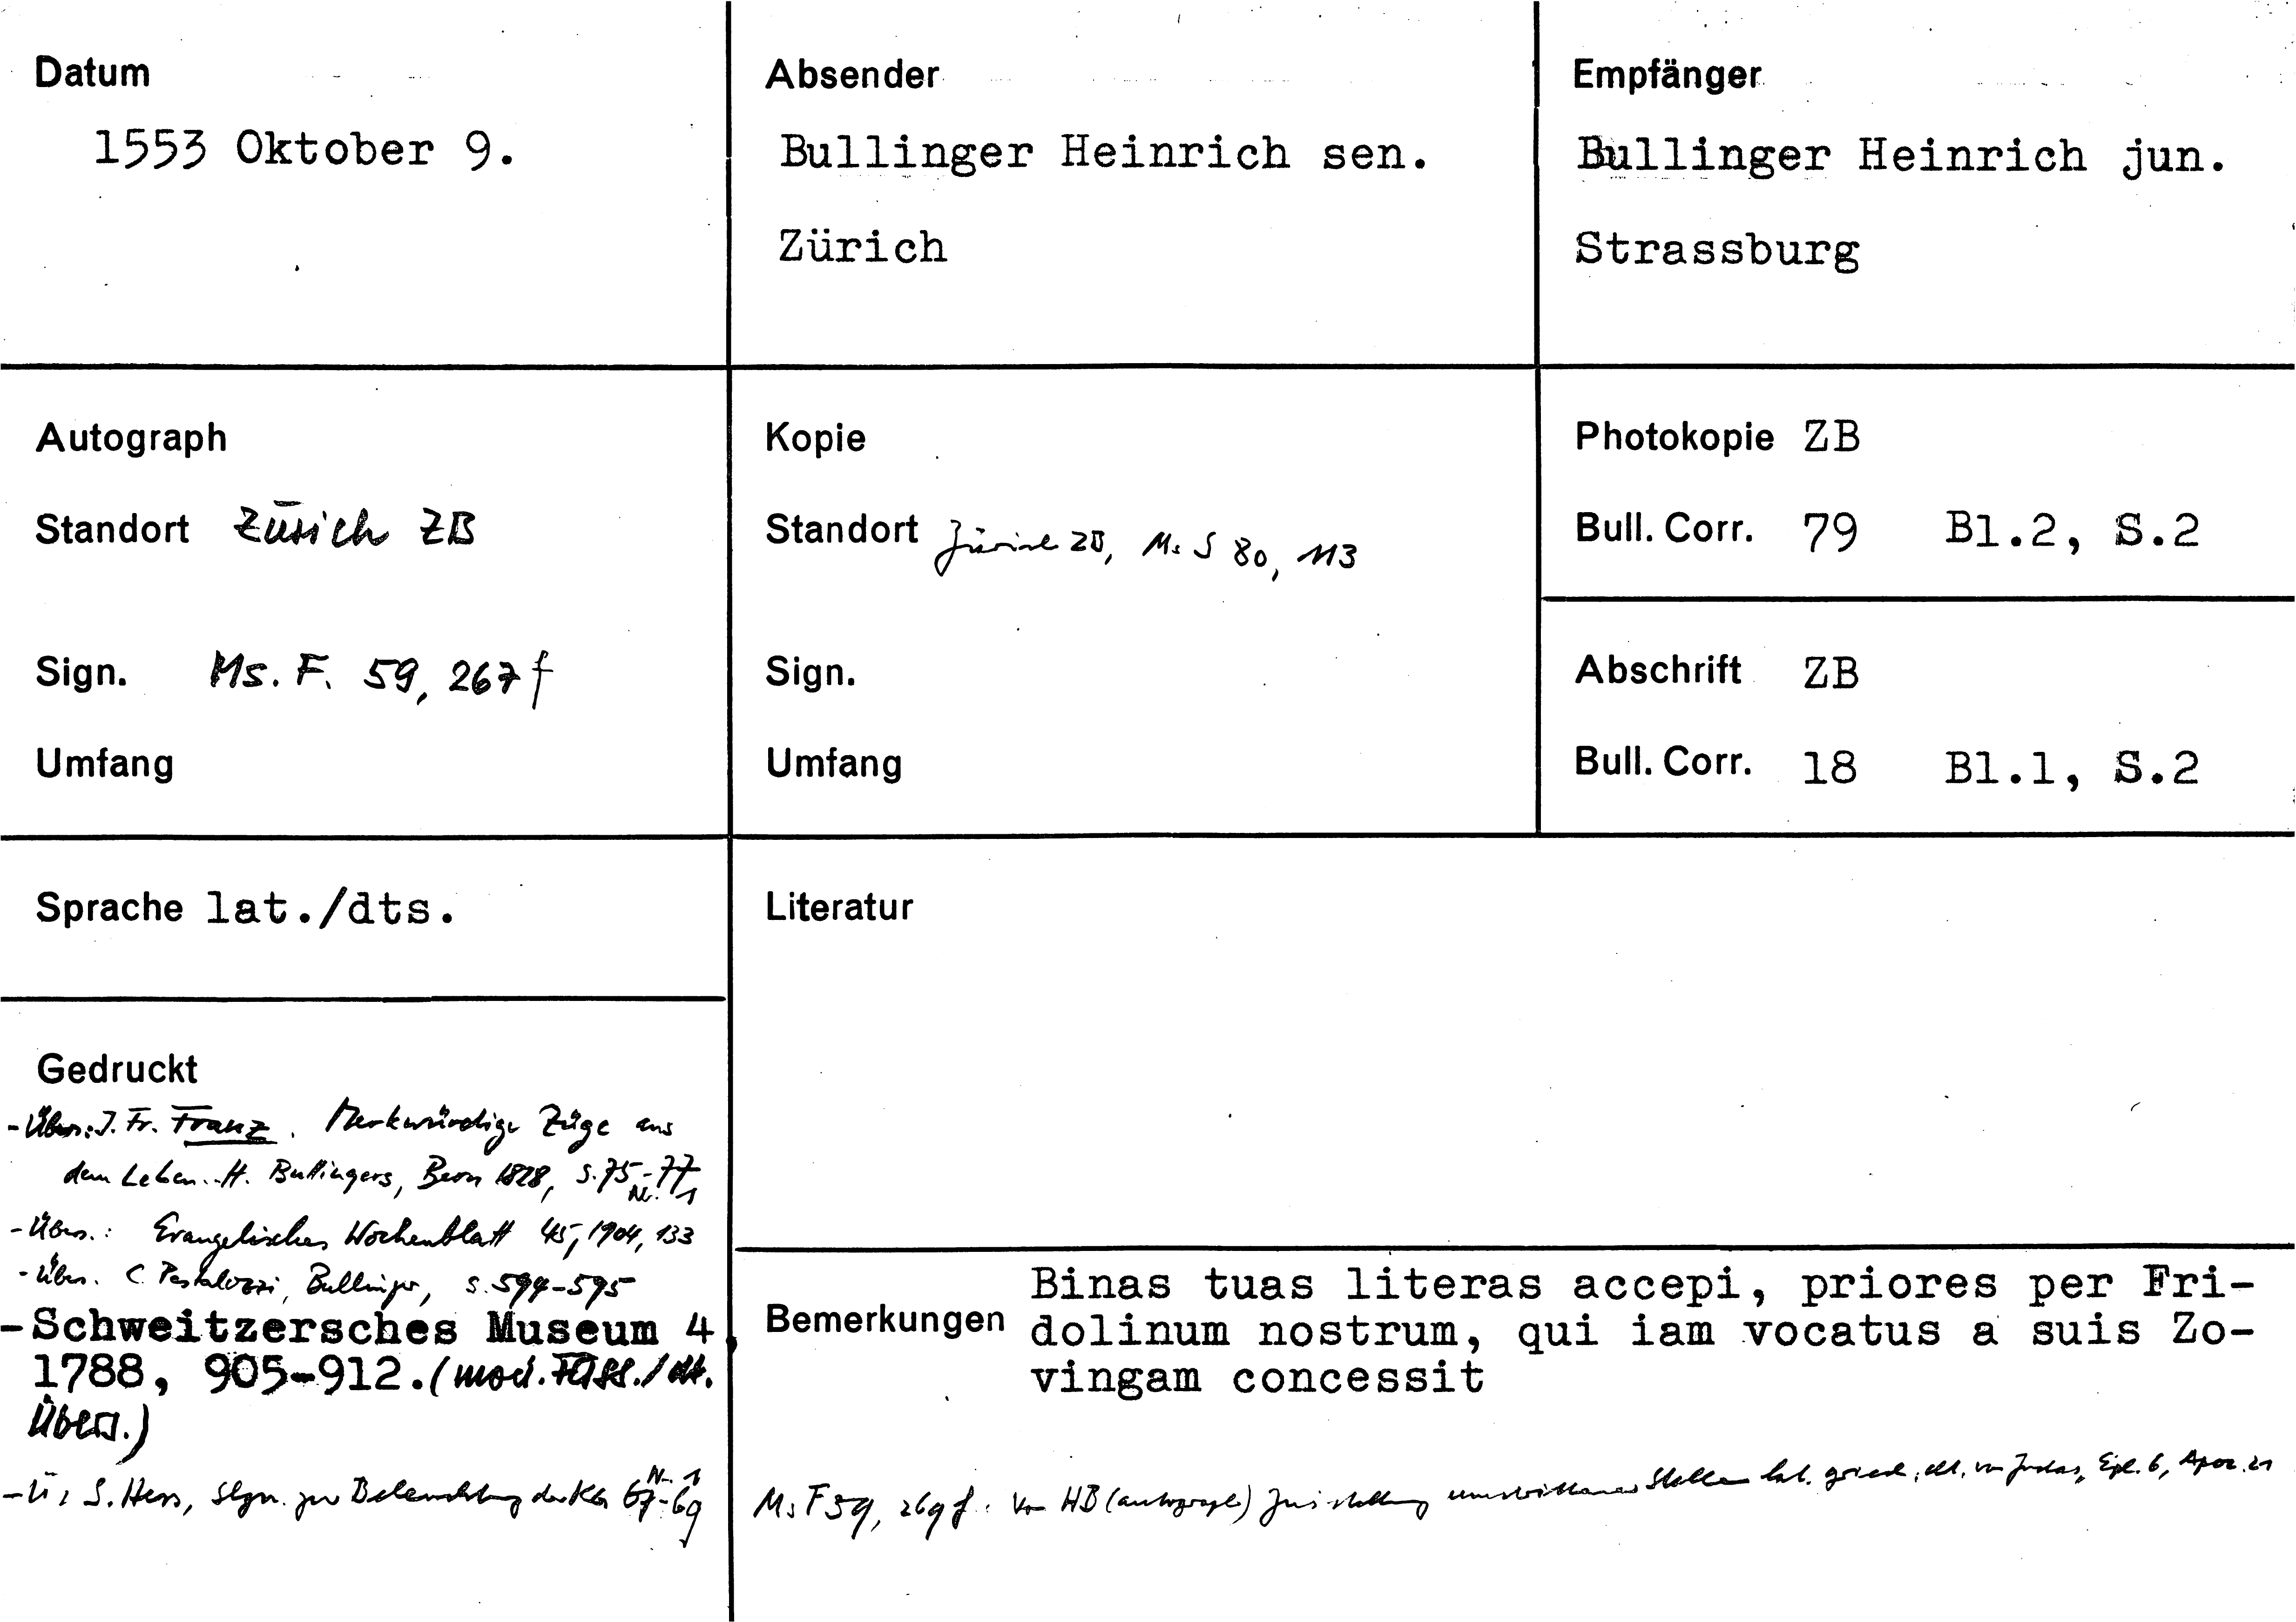 Datum
1553 Oktober 9.
Absender
Bullinger Heinrich sen.
Zürich
Empfänger
Bullinger Heinrich jun.
Strassburg
Autograph
Standort Zürich ZB
Sign. Ms. F. 59, 267 f
Umfang
Kopie
Standort Zürich ZB, Ms S 80, 113
Sign.
Umfang
Photokopie ZB
Bull. Corr. 79 Bl.2, S.2
Abschrift ZB
Bull. Corr. 18 Bl.1, S.2
Sprache lat./dts.
Literatur
Gedruckt
- Übers: J. Fr. Franz. Merkwürdige Züge aus
dem Leben.. H. Bullingers, Bern 1828, S. 75-77
Nr. 1
- Übers.: Evangelisches Wochenblatt 45, 1904, 133
- Übers. C. Pestalozzi, Bullinger, S. 594-595
- Schweitzersches Museum 4,
1788, 905-912. (mod. Fass./dt.
Übers.)
- Ü: S. Hess, zur Beleuchtung der 67-69
Nr. 1
Bemerkungen
Binas tuas literas accepi, priores per Fri-
dolinum nostrum, qui iam vocatus a suis Zo-
vingam concessit
Ms F 59, 269 f: Von HB (autograph) Stellen lat. griech. dt. Judas, Eph. 6, Apoc. 21